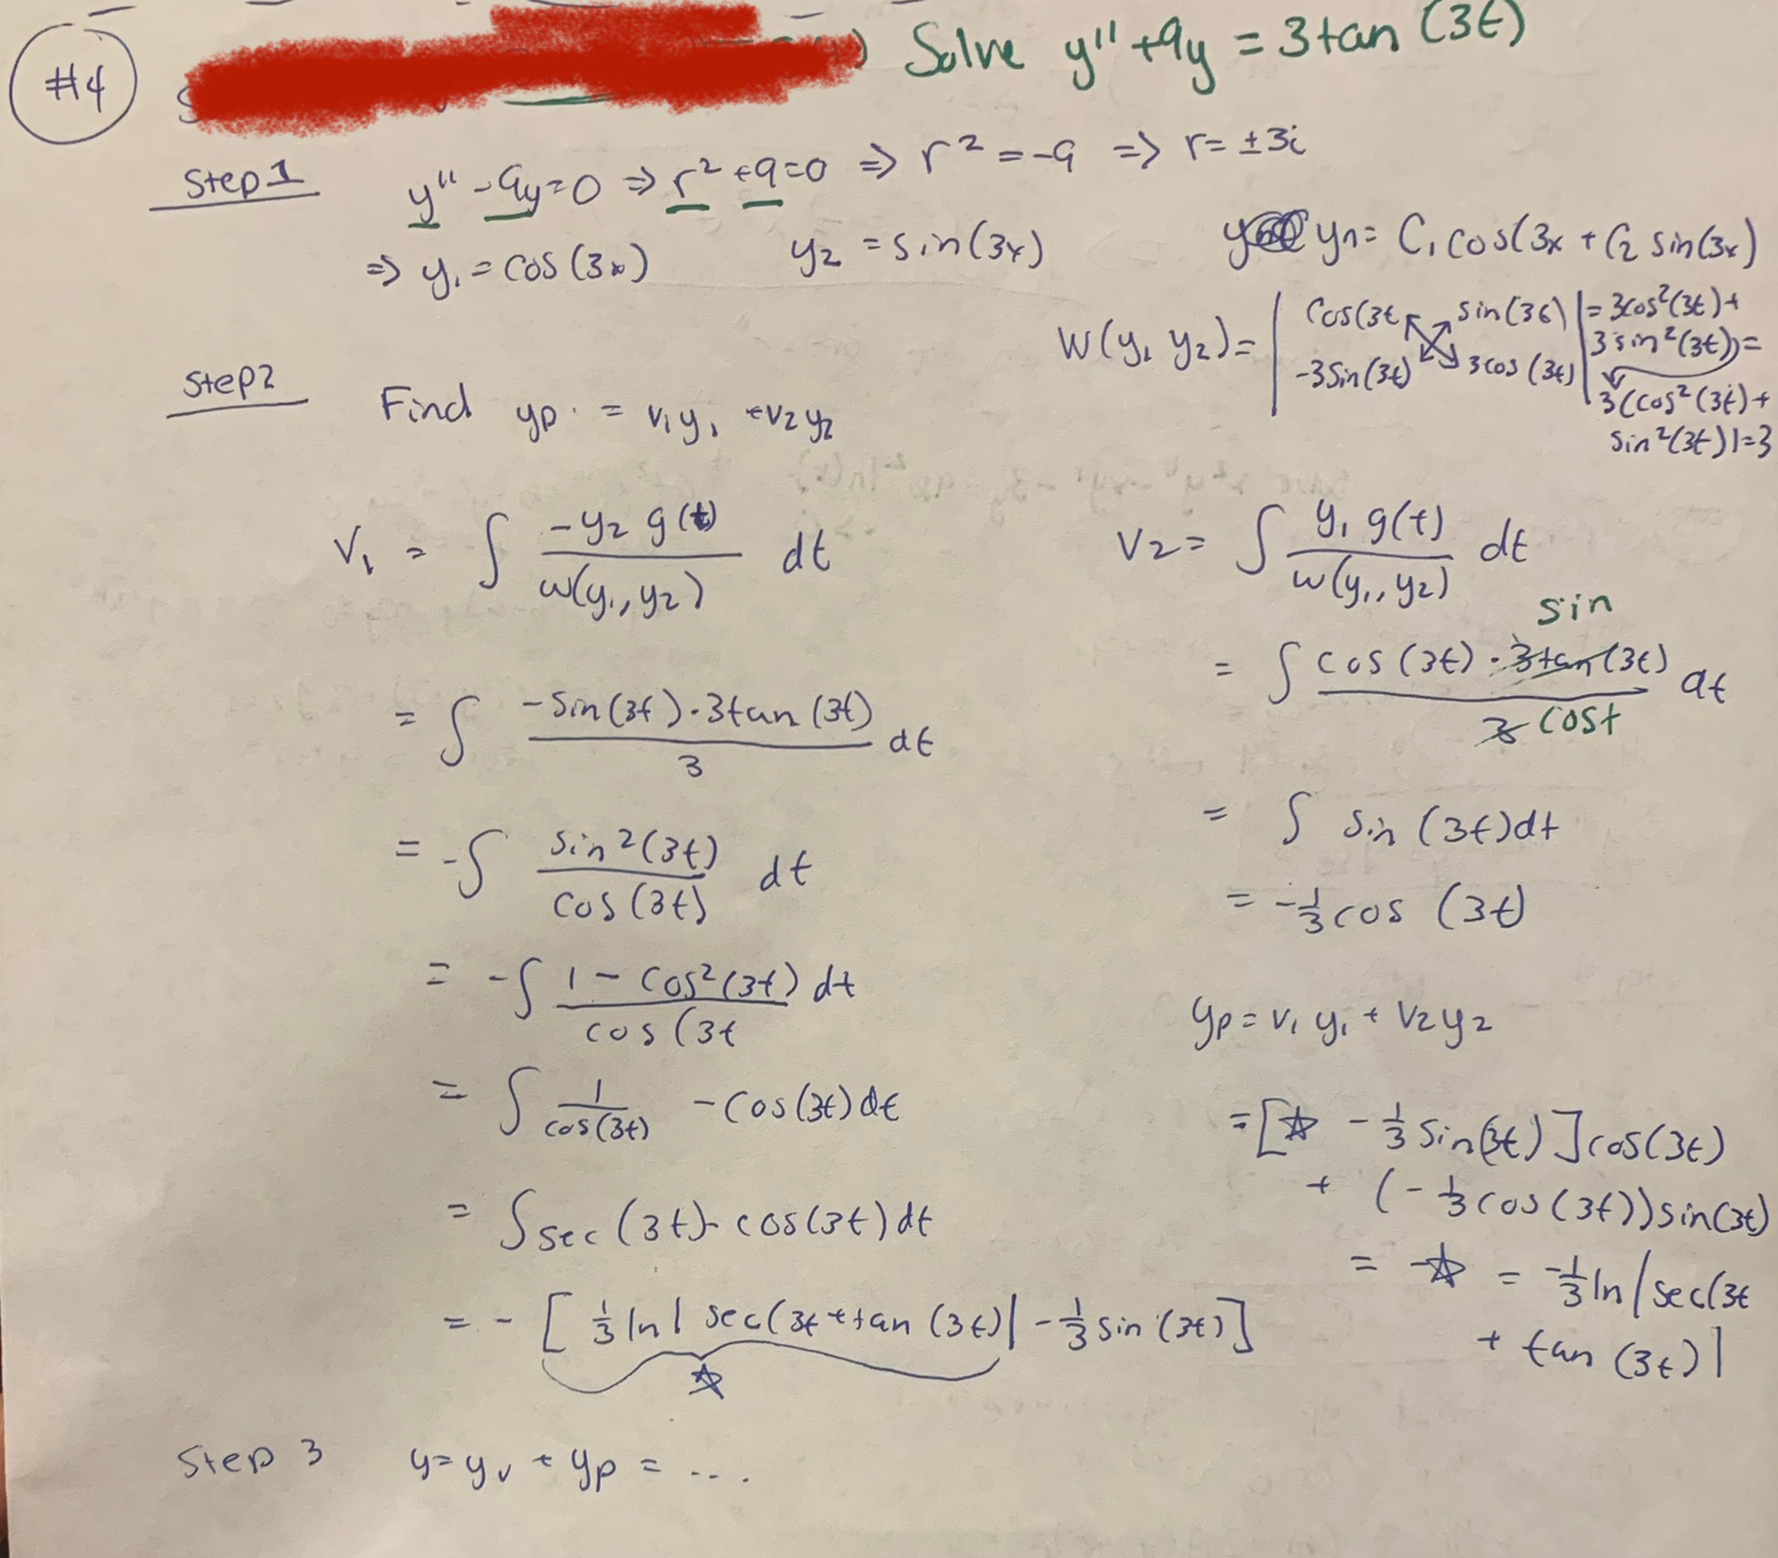 #4 Solve y'' + 9y = 3tan(3t)
Step 1 y'' - 9y = 0 ⇒ r² + 9 = 0 ⇒ r² = -9 ⇒ r = ±3i
⇒ y₁ = cos(3x) y₂ = sin(3x) yh = C₁ cos(3x + C₂ sin(3x)
W(y₁ y₂) = | cos(3t sin(3t) | = 3cos²(3t) +
-3sin(3t) 3cos(3t) | 3sin²(3t)) =
3(cos²(3t) +
sin²(3t)) = 3
Step 2 Find yp = v₁y₁ + v₂y₂
V₁ = ∫ -y₂ g(t) / w(y₁, y₂) dt
= ∫ -sin(3t)·3tan(3t) / 3 dt
= -∫ sin²(3t) / cos(3t) dt
= -∫ 1 - cos²(3t) / cos(3t dt
= ∫ 1 / cos(3t) - cos(3t) dt
= ∫ sec(3t) - cos(3t) dt
= - [ 1/3 ln | sec(3t + tan(3t) | - 1/3 sin(3t) ]
☆
V₂ = ∫ y₁ g(t) / w(y₁, y₂) dt
sin
= ∫ cos(3t) · 3tan(3t) / 3 cost dt
= ∫ sin(3t) dt
= -1/3 cos(3t)
yp = v₁ y₁ + v₂ y₂
= [ ☆ - 1/3 sin(3t) ] cos(3t)
+ (-1/3 cos(3t)) sin(3t)
= -☆ = -1/3 ln | sec(3t
+ tan(3t) |
Step 3 y = yv + yp = ....